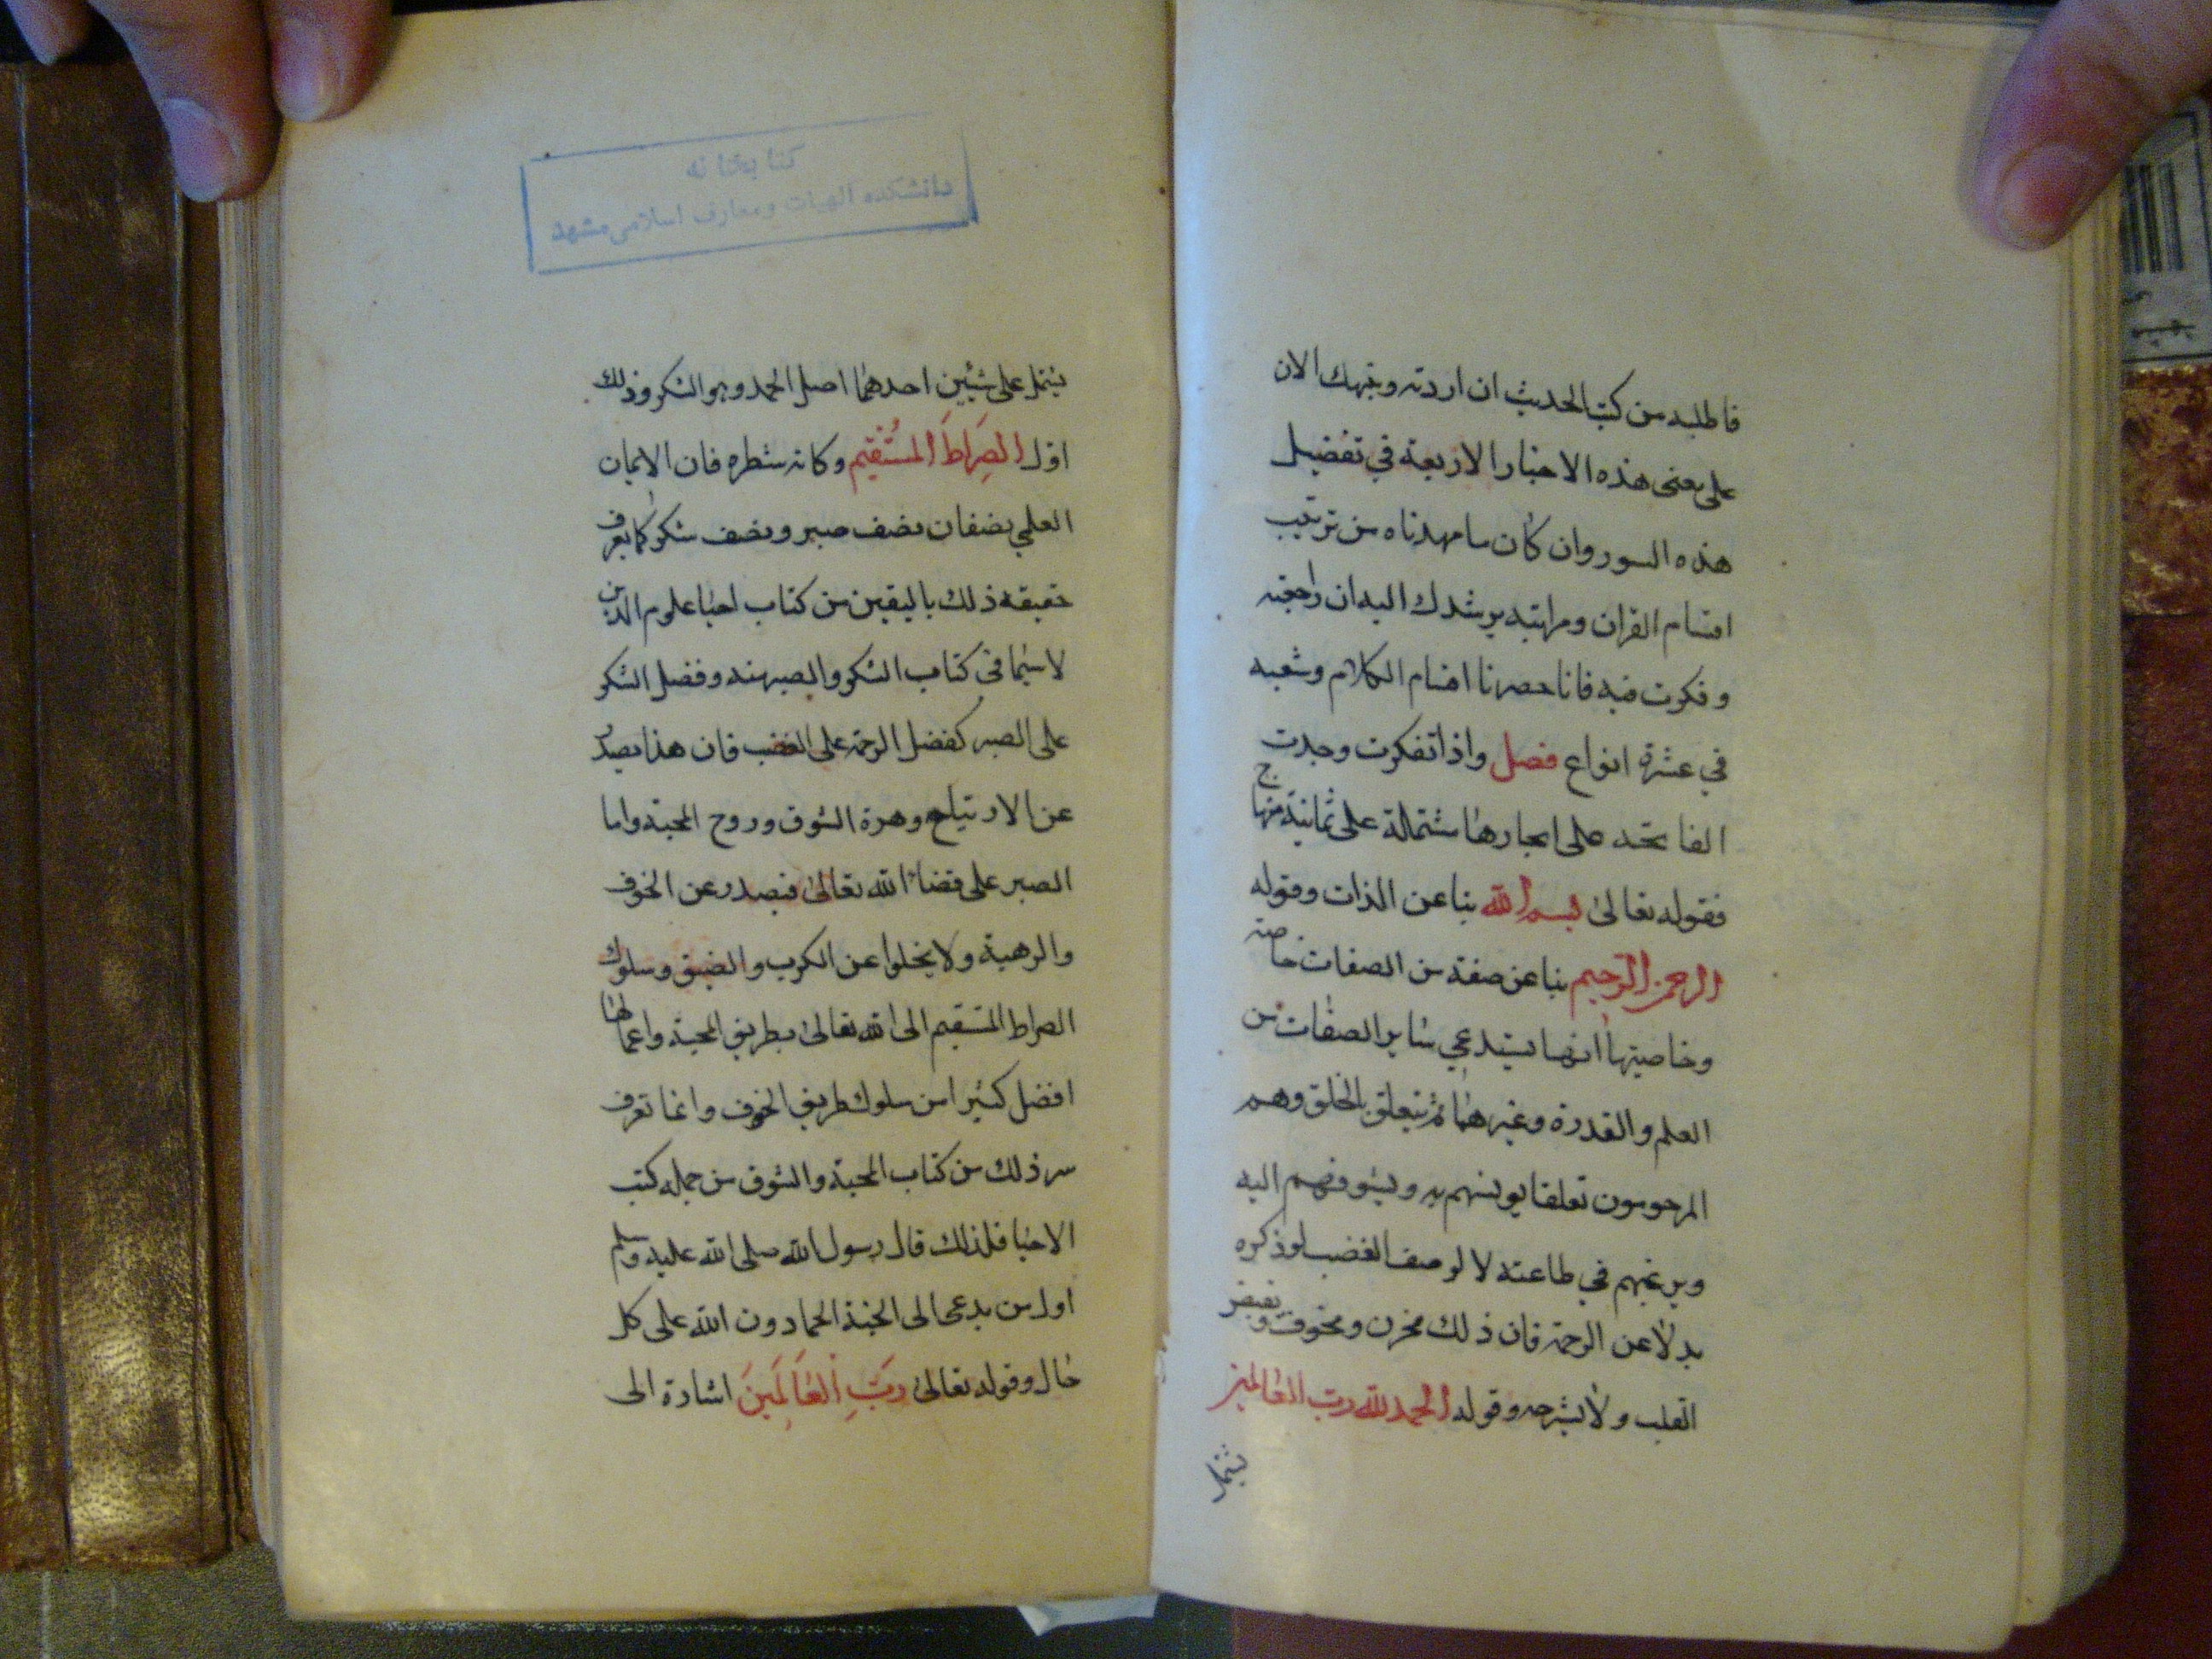 فاطلبه من كتب الحديث ان اردته وينبهك الان
على معنى هذه الاخبار الاربعة في تفضيل
هذه السور وان كان ما مهدناه من ترتيب
اقسام القران ومراتبه يرشدك اليه ان راجعته
وفكرت فيه فانا حصرنا اقسام الكلام وشعبه
في عشرة انواع فصل واذا تفكرت وجدت
الفاتحه على ايجازها مشتملة على ثمانية مناهج
فقوله تعالى بسم الله نبا عن الذات وقوله
الرحمن الرحيم نبا عن صفة من الصفات خاصة
وخاصيتها انها يستدعي ساير الصفات من
العلم والقدرة وغيرهما ثم تتعلق بالخلق وهم
المرحومون تعلقا يونسهم به ويشوقهم اليه
ويرغبهم في طاعته لا لوصف الغضب لو ذكره
بدلا عن الرحمة فان ذلك محزن ومخوف ويقبض
القلب ولا يشرحه وقوله الحمد لله رب العالمين
يشتمل
كتابخانه
دانشكده الهيات ومعارف اسلامى مشهد
يشتمل على شيئين احدهما اصل الحمد وهو الشكر وذلك
اول الصِرَاطَ المُسْتَقيم وكانه شطره فان الايمان
العلمي نصفان نصف صبر ونصف شكر كما يعرف
حقيقة ذلك باليقين من كتاب احيا علوم الدين
لاسيما في كتاب الشكر والصبر منه وفضل الشكر
على الصبر كفضل الرحمة على الغضب فان هذا يصدر
عن الارتياح وهزة الشوق وروح المحبة واما
الصبر على قضاء الله تعالى فيصدر عن الخوف
والرهبة ولا يخلوا عن الكرب والضيق وسلوك
الصراط المستقيم الى الله تعالى بطريق المحبة واعمالها
افضل كثيرا من سلوك طريق الخوف وانما تعرف
سر ذلك من كتاب المحبة والشوق من جمله كتب
الاحيا فلذلك قال رسول الله صلى الله عليه وسلم
اول من يدعى الى الجنة الحمادون الله على كل
حال وقوله تعالى رَبِّ الْعَالَمِينَ اشارة الى